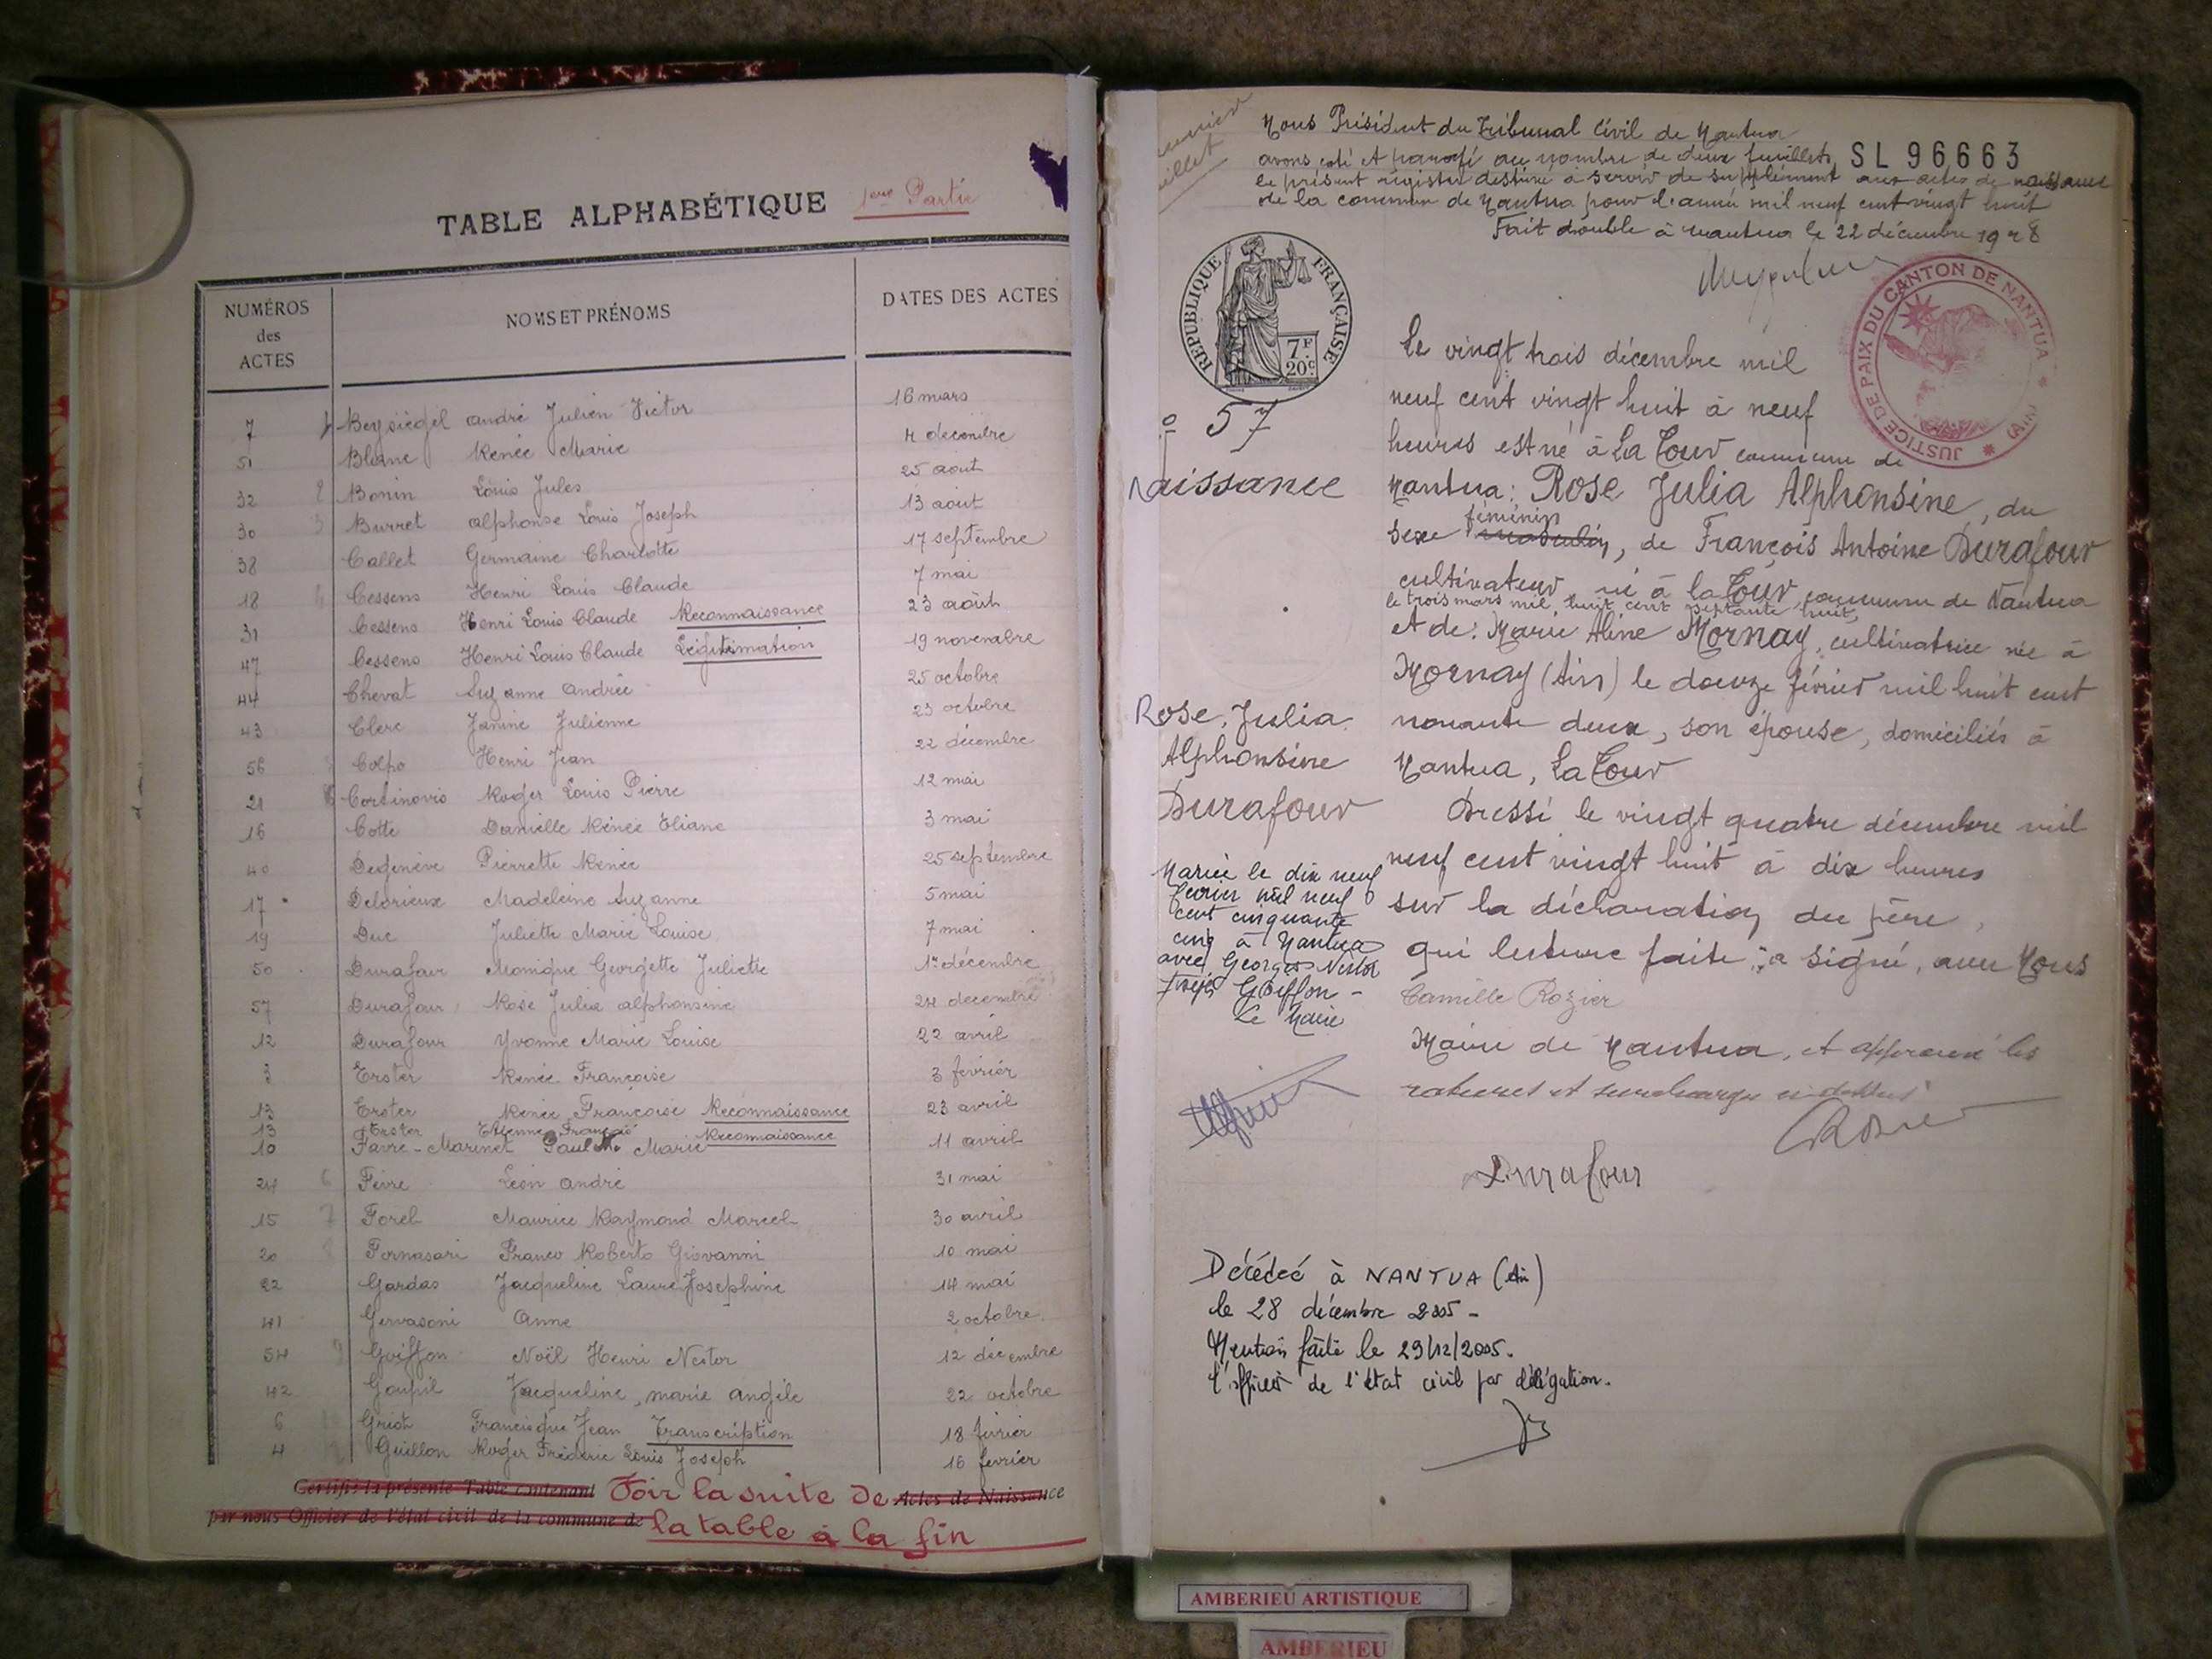 TABLE ALPHABÉTIQUE 1ère Partie
NUMÉROS des ACTES NOMS ET PRÉNOMS DATES DES ACTES
7 Beysiégel andré Julien Victor 16 mars
51 Blanc Renée Marie 4 décembre
32 Bonin Louis Jules 25 août
30 Burret alphonse Louis Joseph 13 août
38 Callet Germaine Charlotte 17 septembre
18 Cessens Henri Louis Claude 7 mai
31 Cessens Henri Louis Claude Reconnaissance 23 août
47 Cessens Henri Louis Claude Légitimation 19 novembre
44 Chevat Suzanne andrée 25 octobre
43 Clerc Janine Julienne 23 octobre
56 Colpo Henri Jean 22 décembre
21 Cortinovis Roger Louis Pierre 12 mai
16 Cotte Danielle Rénée Eliane 3 mai
40 Degenève Pierrette Renée 25 septembre
17 Delorieux Madeleine Suzanne 5 mai
19 Duc Juliette Marie Louise 7 mai
50 Durafour Monique Georgette Juliette 1er décembre
57 Durafour Rose Julia alphonsine 24 décembre
12 Durafour Yvonne Marie Louise 22 avril
3 Erster Renée Françoise 3 février
13 Erster Renée Françoise Reconnaissance 23 avril
13 Erster Etienne François Reconnaissance
10 Favre-Marinet Paul Marie 11 avril
24 Fèvre Léon andré 31 mai
15 Forel Maurice Raymond Marcel 30 avril
20 Fornasari Franco Roberto Giovanni 10 mai
22 Gardas Jacqueline Laure Josephine 14 mai
41 Gervasoni Anne 2 octobre
54 Goiffon Noël Henri Nestor 12 décembre
42 Goupil Jacqueline, marie angèle 22 octobre
6 Griot Francisque Jean Transcription 18 février
4 Guillon Roger Frédéric Louis Joseph 16 février
Certifié la présente Table contenant Voir la suite de Actes de Naissance
par nous Officier de l'état civil de la commune de la table à la fin
Nous Président du Tribunal Civil de Nantua
avons coté et parafé au nombre de deux feuillets SL 96663
le présent registre destiné à servir de supplément aux actes de naissance
de la commune de Nantua pour l'année mil neuf cent vingt huit
Fait double à Nantua le 22 décembre 1928
RÉPUBLIQUE FRANÇAISE
7F 20c
JUSTICE DE PAIX DU CANTON DE NANTUA * (AIN) *
o 57
Naissance
Rose, Julia
Alphonsine
Durafour
Mariée le dix neuf
février mil neuf
cent cinquante
cinq à Nantua
avec Georges Nestor
Joseph Goiffon -
Le Maire
Le vingt trois décembre mil
neuf cent vingt huit à neuf
heures est né à La Tour commune de
Nantua: Rose Julia Alphonsine, du
féminin
sexe masculin, de François Antoine Durafour
cultivateur né à la Tour, commune de Nantua
le trois mars mil huit cent septante huit,
et de: Marie Aline Mornay, cultivatrice née à
Mornay (Ain) le douze février mil huit cent
nonante deux, son épouse, domiciliés à
Nantua, La Tour
Dressé le vingt quatre décembre mil
neuf cent vingt huit à dix heures
sur la déclaration du père,
qui lecture faite, a signé, avec Nous
Camille Rozier
Maire de Nantua, et approuvé les
ratures et surcharges ci-dessus
CRozier
Durafour
Décédée à NANTUA (Ain)
le 28 décembre 2005 -
Mention faite le 29/12/2005.
L'officier de l'état civil par délégation.
AMBERIEU ARTISTIQUE
AMBERIEU